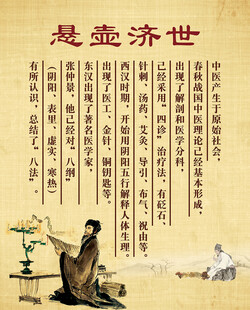 悬壶济世
中医产生于原始社会，
春秋战国中医理论已经基本形成，
出现了解剖和医学分科，
已经采用“四诊”治疗法，有砭石、
针刺、汤药、艾灸、导引、布气、祝由等。
西汉时期，开始用阴阳五行解释人体生理。
出现了医工、金针、铜钥匙等。
东汉出现了著名医学家，
张仲景，他已经对“八纲”
（阴阳、表里、虚实、寒热）
有所认识，总结了“八法”。